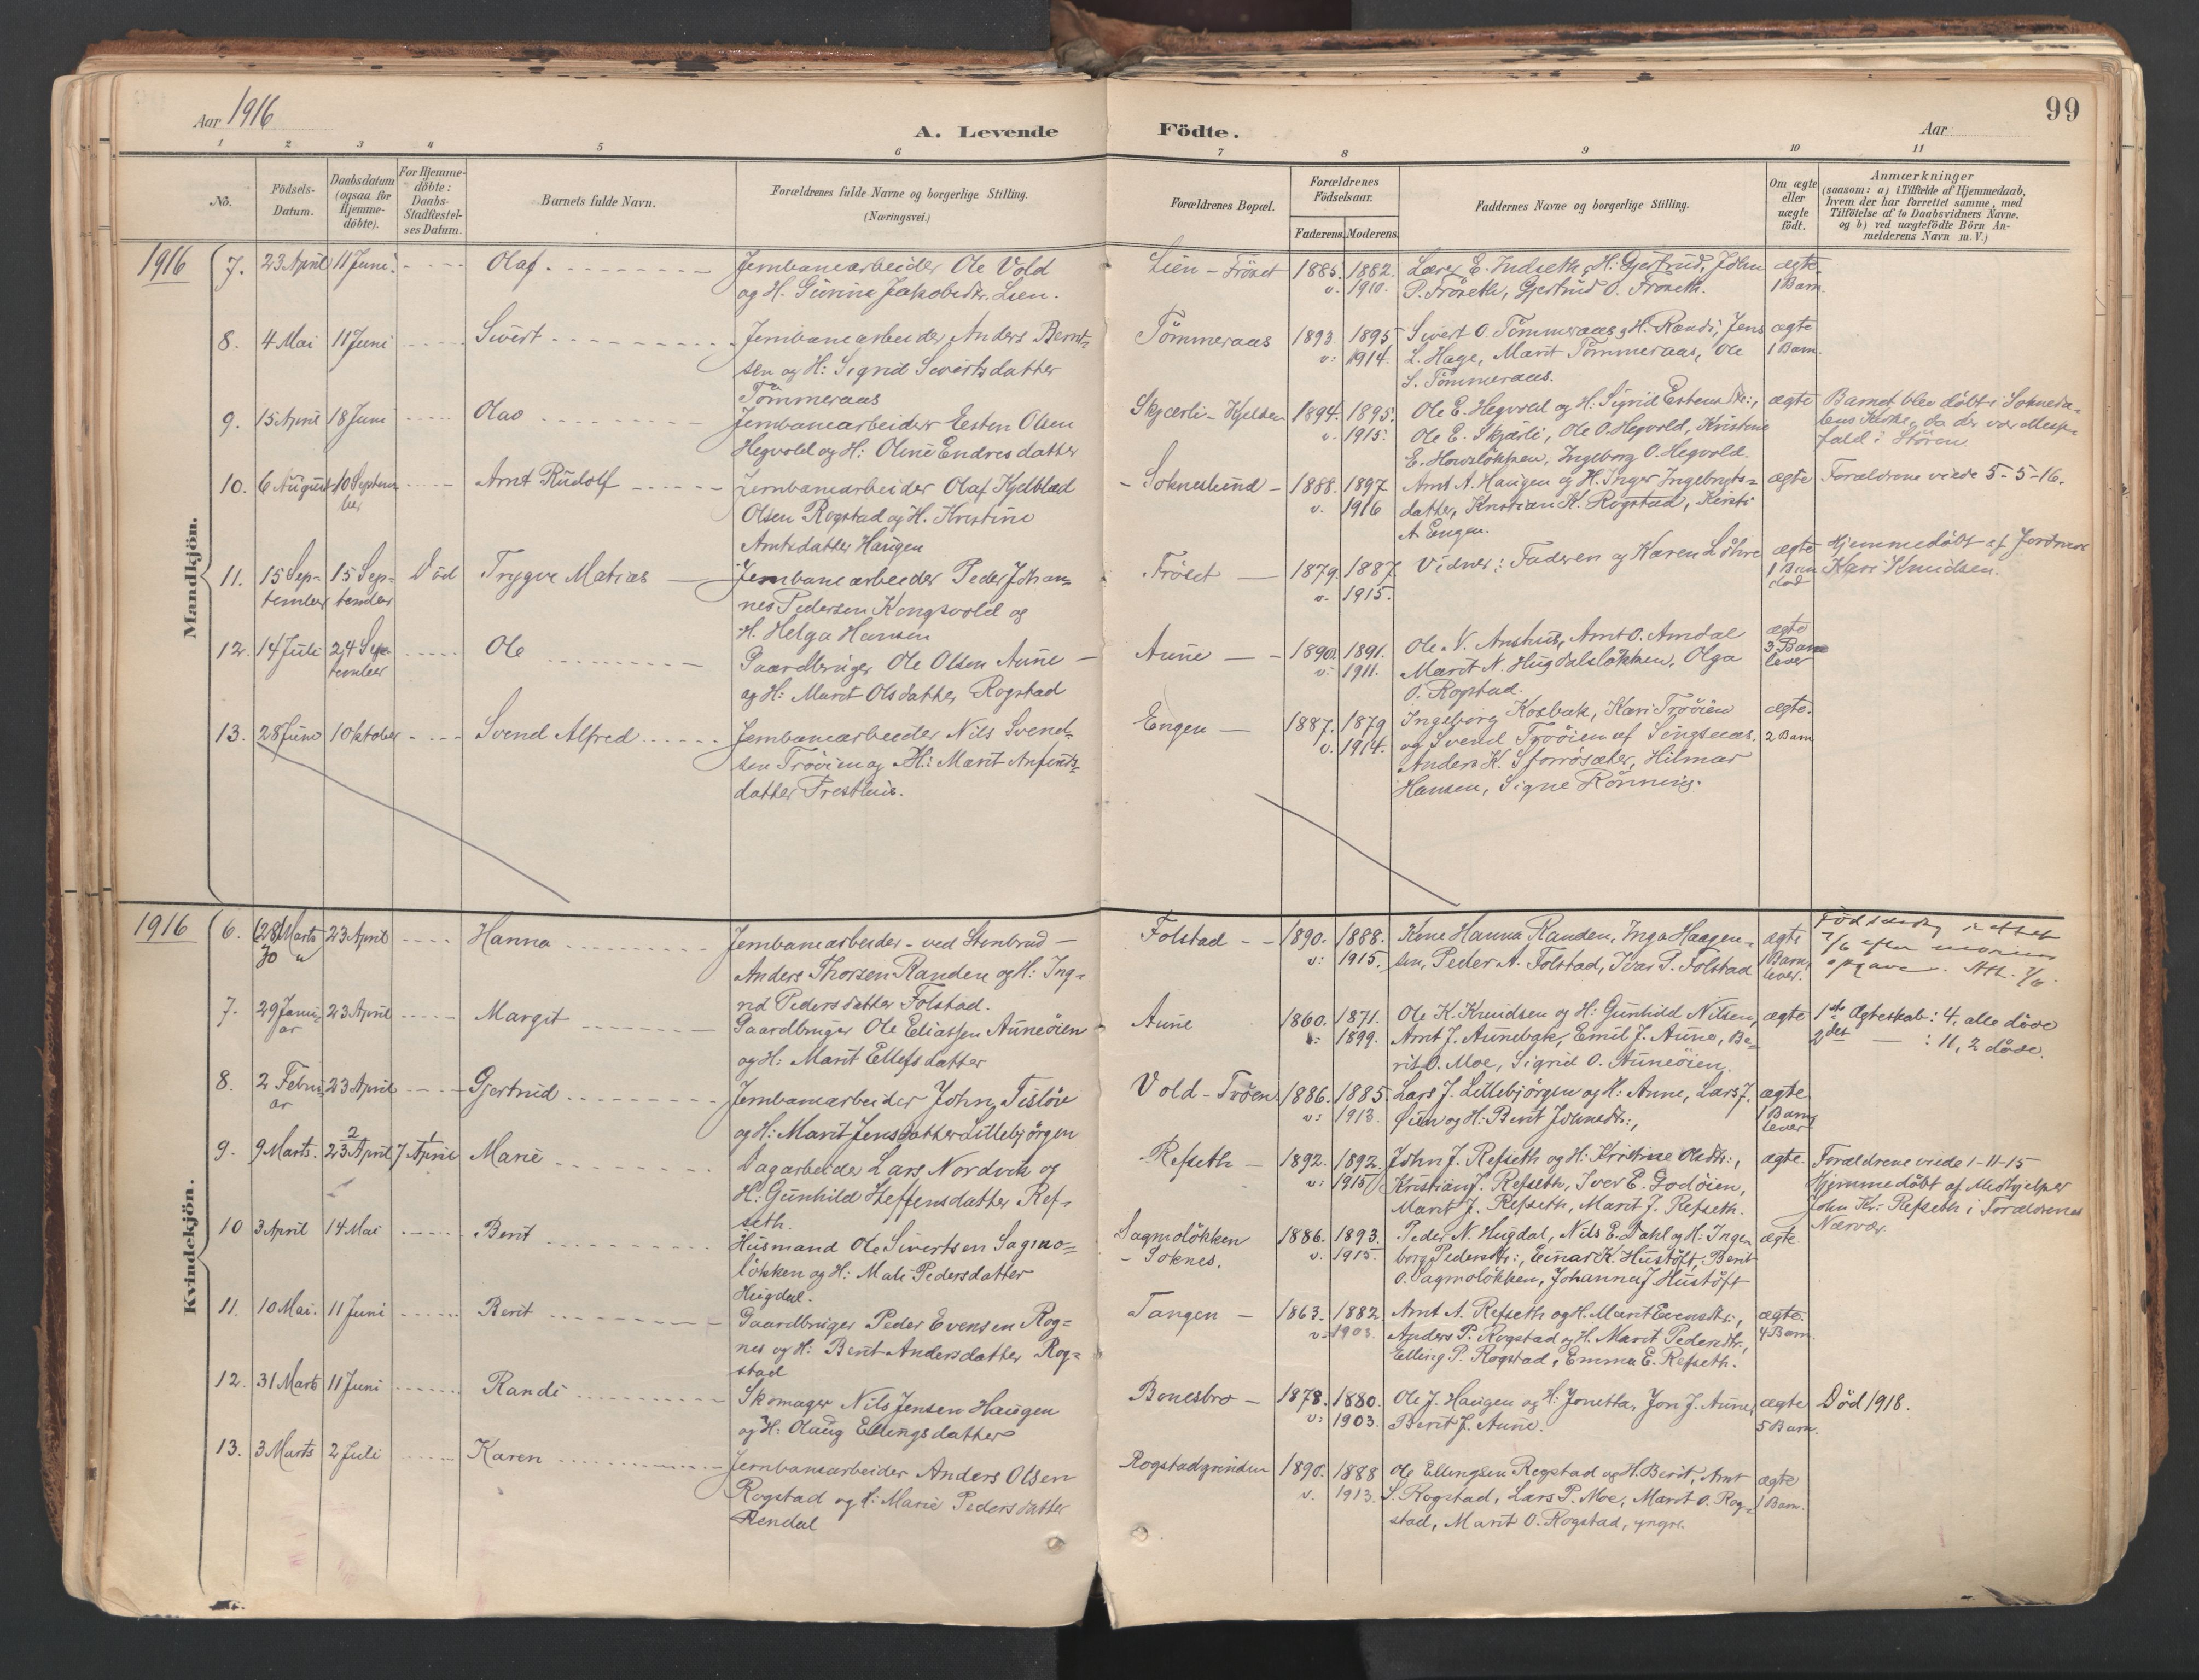 Aar 1916
A. Levende Födte.
Aar
99
1 2 3 4 5 6 7 8 9 10 11
No.
Födsels-Datum.
Daabsdatum (ogsaa for Hjemme-döbte).
For Hjemme-döbte: Daabs-Stadfæstel-ses Datum.
Barnets fulde Navn.
Forældrenes fulde Navne og borgerlige Stilling. (Næringsvei.)
Forældrenes Bopæl.
Forældrenes Födselsaar.
Faderens. Moderens.
Faddernes Navne og borgerlige Stilling.
Om ægte eller uægte födt.
Anmærkninger
(saasom: a) i Tilfælde af Hjemmedaab,
hvem der har forrettet samme, med
Tilföielse af to Daabsvidners Navne,
og b) ved uægtefödte Börn An-
melderens Navn m. V.)
Mandkjön.
1916 7. 23 April 11 Juni Olaf Jernbanearbeider Ole Vold Lien - Fröset 1885. 1882. Lærer E. Indseth og H: Gjertrud, John ægte
og H. Gurine Jakobsdtr. Lien. v. 1910. P. Fröseth, Gjertrud O. Fröseth. 1 Barn.
8. 4 Mai 11 Juni Sivert Jernbanearbeider Anders Bernt- Tömmeraas 1893 1895 Sivert O. Tömmeraas og H. Randi, Jens ægte
sen og H: Sigrid Sivertsdatter v: 1914. L. Hage, Marit Tömmeraas, Ole 1 Barn.
Tömmeraas S. Tömmeraas.
9. 15 April 18 Juni Olav Jernbanearbeider Esten Olsen Skjærli - 1894. 1895. Ole E. Hegvold og H: Sigrid Estensdtr:, ægte Barnet blev döbt i Sokneda-
Hegvold og H: Oline Endresdatter v. 1915. Ole E. Skjærli, Ole O. Hegvold, Kristine lens Kirke, da der var Messe-
E. Hovslökken, Ingeborg O. Hegvold. fald i Stören.
10. 6 August 10 Septem- Arnt Rudolf Jernbanearbeider Olaf Kjelblad - Sokneslund - 1888. 1897 Arnt A. Haugen og H. Inger Ingebrigts- ægte Forældrene viede 5-5-16.
ber Olsen Rogstad og H. Kristine v. 1916 datter, Kristian K. Rogstad, Kirsti
Arntsdatter Haugen A. Engen.
11. 15 Sep- 15 Sep- Död Trygve Matias Jernbanearbeider Peder Johan- Fröset 1879. 1887. Vidner: Faderen og Karen Löhre ægte Hjemmedöbt af Jordmor
tember tember nes Pedersen Kongsvold og v. 1915. 1 Barn Kari Knudsen.
H. Helga Hansen död
12. 14 Juli 24 Sep- Ole Gaardbruger Ole Olsen Aune Aune 1890. 1891. Ole N. Anshus, Arnt O. Amdal ægte
tember og H: Marit Olsdatter Rogstad v: 1911. Marit N. Hugdalslökken, Olga 3 Barn
O. Rogstad. lever
13. 28 Juni 1 Oktober Svend Alfred Jernbanearbeider Nils Svend- Engen 1887. 1879 Ingeborg Kosbak, Kari Trööien ægte.
sen Trööien og H: Marit Anfinds- v. 1914. og Svend Trööien af Singsaas, 2 Barn
datter Presthus. Anders K. Sporrösæter, Hilmar
Hansen, Signe Rönning.
Kvindekjön.
1916 6. (28 Marts) 23 April Hanna Jernbanearbeider - ved Stenbrud - Folstad 1890. 1888. Kone Hanna Randen, Inga Haagen- ægte Födselsdag rettet
30 " Anders Thorsen Randen og H: Ing- v: 1915. sen, Peder A. Folstad, Ivar P. Folstad 1 Barn, 7/6 efter morens
rid Pedersdatter Folstad. lever. opgave. 7/6.
7. 29 Janu- 23 April Margit Gaardbruger Ole Eliassen Auneöien Aune 1860. 1871. Ole K. Knudsen og H: Gunhild Nilsen, ægte 1ste Ægteskab: 4, alle döde
ar og H: Marit Ellefsdatter 1899. Arnt J. Aunebak, Emil J. Aune, Be- 2det — : 11, 2 döde.
rit O. Moe, Sigrid O. Auneöien.
8. 2 Febru- 23 April Gjertrud Jernbanearbeider John Tislöv Vold - Tröen 1886. 1885 Lars J. Lillebjörgen og H: Anne, Lars J. ægte
ar og H: Marit Jensdatter Lillebjörgen v: 1913. Öien og H: Berit Johnsdtr:, 1 Barn, lever
9. 9 Marts. 23 April 2 7 April 1 Marie Dagarbeider Lars Nordvik og Refseth 1892. 1892. John J. Refseth og H: Kristine Olsdtr:, ægte. Forældrene viede 1-11-15
H: Gunhild Steffensdatter Ref- v: 1915 Kristian J. Refseth, Iver E. Godöien, Hjemmedöbt af Medhjelper
seth. Marit J. Refseth, Marit J. Refseth. John Kr. Refseth i Forældrenes
Nærvær.
10 3 April 14 Mai Berit Husmand Ole Sivertsen Sagmo- Sagmolökken 1886. 1893. Peder N. Hugdal, Nils E. Dahl og H: Inge- ægte.
lökken og H: Mali Pedersdatter - Soknes. v. 1915. borg Pedersdtr:, Einar K. Hustöft, Berit
Hugdal. O. Sagmolökken, Johanna J. Hustöft
11. 10 Mai. 11 Juni Berit Gaardbruger Peder Evensen Rog- Tangen 1863. 1882 Arnt A. Refseth og H. Marit Evensdtr:, ægte.
nes og H: Berit Andersdatter Rog- v: 1903. Anders P. Rogstad og H. Marit Pedersdtr., 4 Barn.
stad Elling P. Rogstad, Emma E. Refseth.
12. 31 Marts 11 Juni Randi Skomager Nils Jensen Haugen Bonesbro 1878. 1880. Ole J. Haugen og H: Jonetta, Jon J. Aune, ægte Död 1918.
og H: Olaug Ellingsdatter v: 1903. Berit J. Aune. 5 Barn.
13. 3 Marts 2 Juli Karen Jernbanearbeider Anders Olsen Rogstadgrinden 1890. 1888 Ole Ellingsen Rogstad og H. Berit, Arnt ægte
Rogstad og H: Marie Pedersdatter v. 1913. S. Rogstad, Lars P. Moe, Marit O. Rog- 1 Barn.
Rendal stad, Marit O. Rogstad, yngre.